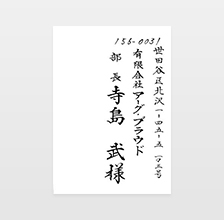 156-0031
世田谷区北沢一-四五-五 一〇三号
有限会社アーグ・ブラウド
部長 寺島 武様